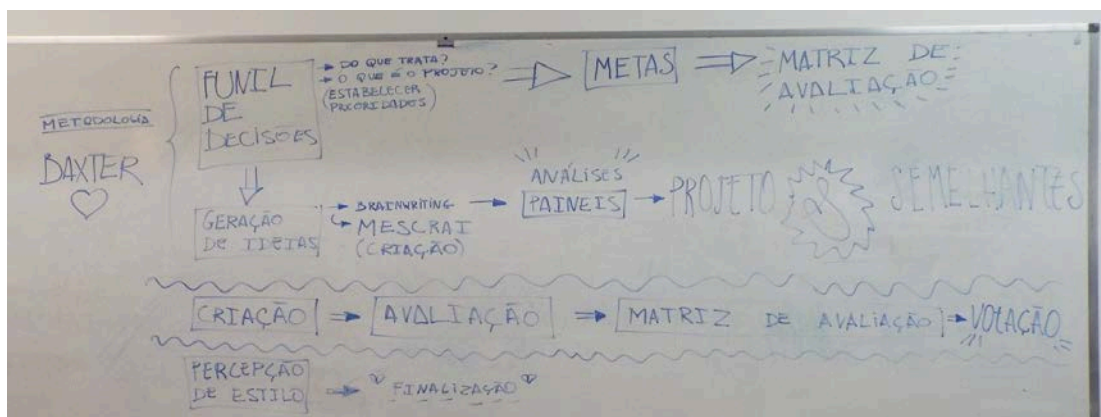 METODOLOGIA
BAXTER
FUNIL
DE
DECISÕES
DO QUE TRATA?
O QUE É O PROJETO?
(ESTABELECER
PRIORIDADES)
METAS
MATRIZ DE
AVALIAÇÃO
GERAÇÃO
DE IDEIAS
BRAINWRITING
MESCRAI
(CRIAÇÃO)
ANÁLISES
PAINEIS
PROJETO & SEMELHANTES
CRIAÇÃO AVALIAÇÃO MATRIZ DE AVALIAÇÃO VOTAÇÃO
PERCEPÇÃO
DE ESTILO
"FINALIZAÇÃO"